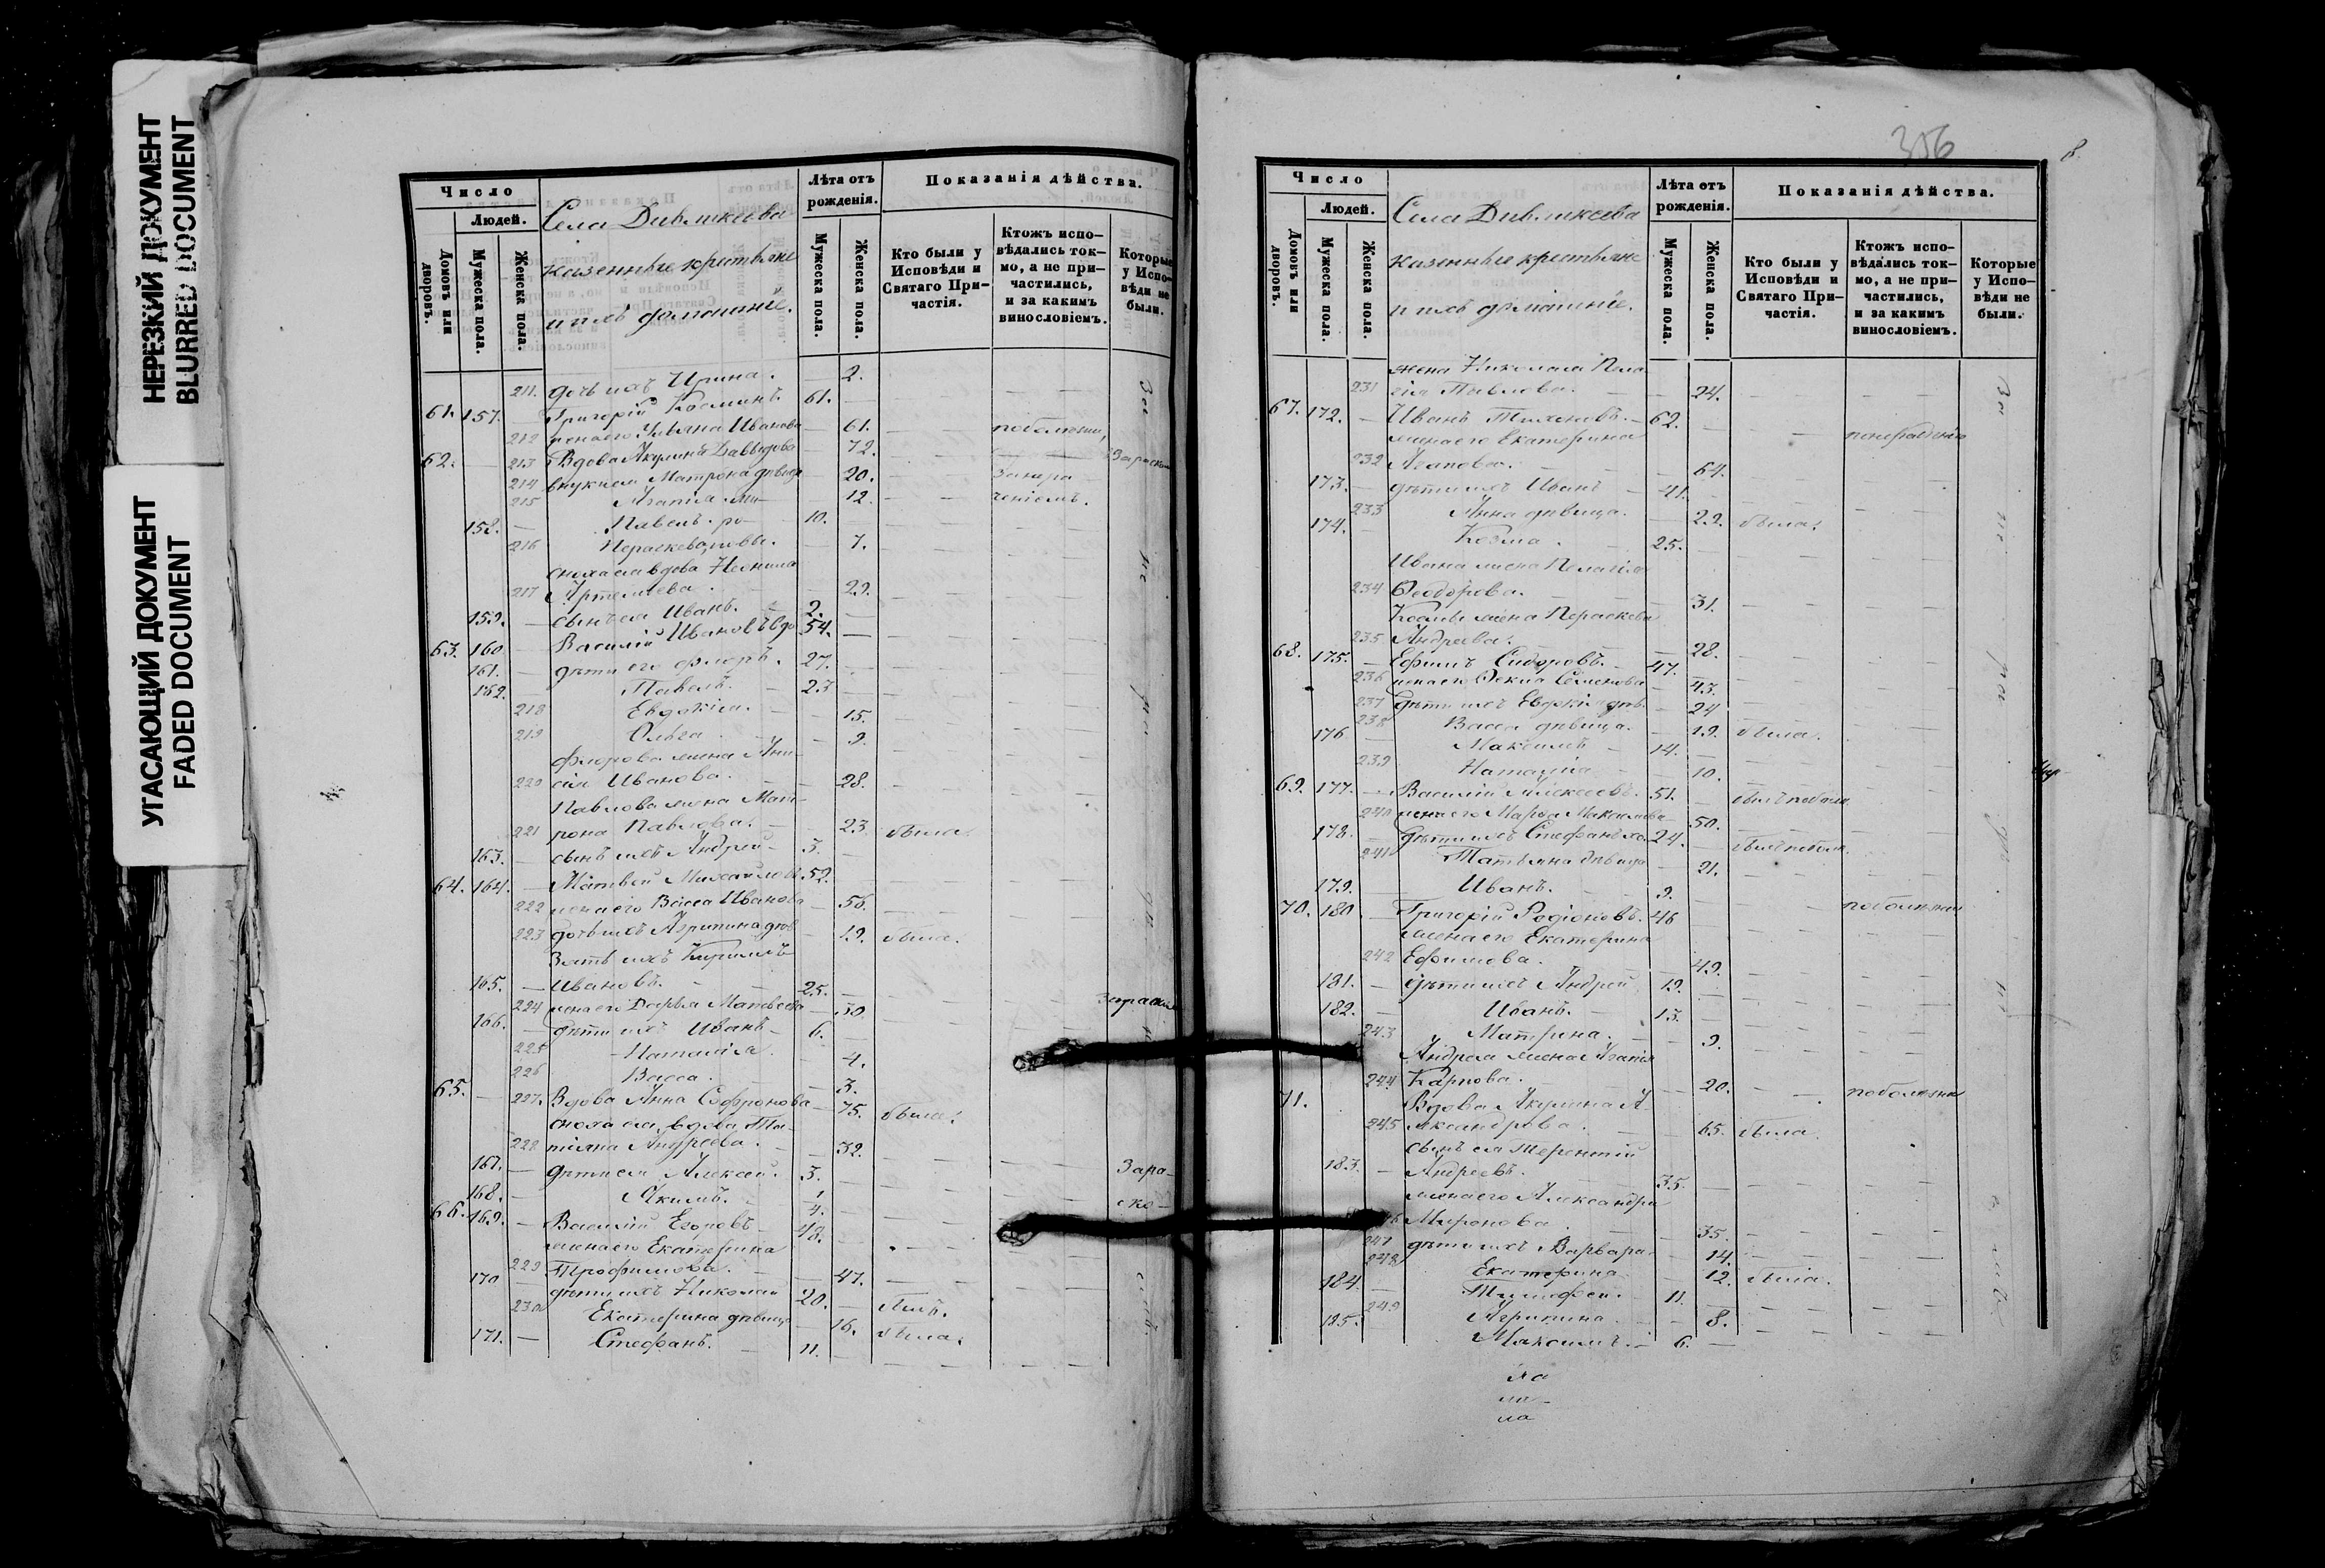 НЕРЕЗКИЙ ДОКУМЕНТ
BLURRED DOCUMENT
УГАСАЮЩИЙ ДОКУМЕНТ
FADED DOCUMENT
Число
Людей.
Домовъ или дворовъ.
Мужеска пола.
Женска пола.
Села
казенные
и ихъ домашніе.
Лѣта отъ рожденія.
Мужеска пола.
Женска пола.
Показанія дѣйства.
Кто были у Исповѣди и Святаго Причастія.
Ктожъ исповѣдались токмо, а не причастились, и за какимъ винословіемъ.
Которые у Исповѣди не были.
211. дочь ихъ Ирина. 2.
61. 157. Григорій Косминъ. 61.
212 жена его Ульяна Иванова 61.
62. 213 Вдова Акулина Давыдова 72.
214 внуки ея Матрона дѣвица 20.
215 Агапія 12.
158. Павелъ 10.
216 Параскева 7.
сноха ея вдова Неонила
217 Артемиева. 29.
159. сынъ ея Иванъ. 2.
63. 160 Василій Ивановъ вдо 54.
161. дѣти его Флоръ. 27.
162. Павелъ. 23
218 Евдокія. 15.
219 Ольга 9.
Флорова жена Ани-
220 сія Иванова. 28.
Павлова жена Мат-
221 рона Павлова. 23. была.
163. сынъ ихъ Андрей 3.
64. 164. Матвей Михайловъ 52.
222 жена его Васса Иванова 56.
223 дочь ихъ Агрипина дѣв 19. была.
Зять ихъ Кирилъ
165. Ивановъ. 25.
224 жена его Дарья Матвеева 30.
166. дѣти ихъ Иванъ 6.
225 Наталія. 4.
226 Васса. 3.
65. 227. Вдова Анна Софронова 75. была.
сноха ея вдова Та-
228 тіяна Андреева. 32.
167. дѣти ея Алексей. 3. За ра-
168. Якимъ. 1. ско-
66. 169. Василій Егоровъ 48.
жена его Екатерина
229 Трофимова. 47.
170 дѣти ихъ Николай 20. былъ.
230 Екатерина дѣвица 16. была.
171. Стефанъ. 11.
356
8.
Число
Людей.
Домовъ или дворовъ.
Мужеска пола.
Женска пола.
Села
казенные
и ихъ домашніе.
Лѣта отъ рожденія.
Мужеска пола.
Женска пола.
Показанія дѣйства.
Кто были у Исповѣди и Святаго Причастія.
Ктожъ исповѣдались токмо, а не причастились, и за какимъ винословіемъ.
Которые у Исповѣди не были.
жена Николая Пела-
231 гія Павлова. 24.
67. 172. Иванъ Тихоновъ. 62.
жена его Екатерина
232 Агапова. 64.
173. дѣти ихъ Иванъ 41.
233 Анна дѣвица. 29. была.
174. Козма. 25.
Ивана жена Пелагія
234 Ѳеодорова. 31.
Козмы жена Параскева
235 Андреева. 28.
68. 175. Ефимъ Сидоровъ. 47.
236 жена его Ѳекла Семенова 43.
237 дѣти ихъ Евдокія дѣв. 24
238 Васса дѣвица. 19. была.
176 Максимъ 14.
239 Наталія 10.
69. 177. Василій Алексеевъ. 51.
240 жена его Марѳа Максимова 50.
178. дѣти ихъ Стефанъ хо. 24.
241 Татьяна дѣвица 21.
179. Иванъ. 9.
70. 180. Григорій Родіоновъ. 46
жена его Екатерина
242 Ефимова. 49.
181. дѣти ихъ Андрей 19.
182. Иванъ. 13.
243 Матрина. 9.
Андрея жена Агапія
244 Карпова. 20.
71. Вдова Акулина А-
245 лександрова. 65. была.
сынъ ея Терентій
183. Андреевъ. 35.
жена его Александра
Миронова 35.
247 дѣти ихъ Варвара 14.
248 Екатерина 12. была.
184. Тимофей. 11.
249 Агрипина. 8.
185. Максимъ. 6.